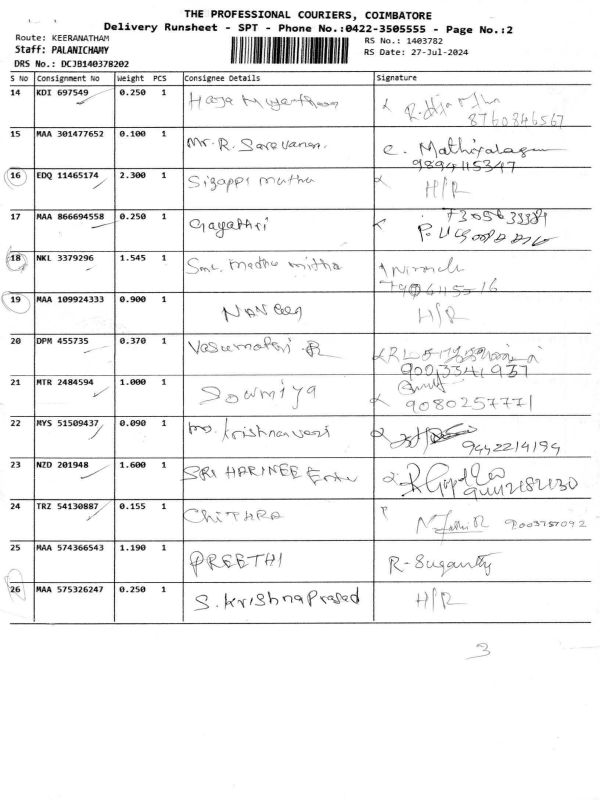 THE PROFESSIONAL COURIERS, COIMBATORE
Delivery Runsheet - SPT - Phone No.:0422-3505555 - Page No.:2
Route: KEERANATHAM
RS No.: 1403782
Staff: PALANICHAMY
RS Date: 27-Jul-2024
DRS No.: DCJB140378202
S No Consignment No Weight PCS Consignee Details Signature
14 KDI 697549 0.250 1
8760846567
15 MAA 301477652 0.100 1 Mr. R. Saravanan. C. Mathiyalagan
9894115347
16 EDQ 11465174 2.300 1 Sigappi muthu H/R
17 MAA 866694558 0.250 1 Gayathri
18 NKL 3379296 1.545 1 Smt. madhu mitha
19 MAA 109924333 0.900 1 NAVEEN H/R
20 DPM 455735 0.370 1 Vasumathi .R
9003541937
21 MTR 2484594 1.000 1 Sowmiya
9080257771
22 MYS 51509437 0.090 1 krishnaveni
9442214194
23 NZD 201948 1.600 1 SRI HARINEE
24 TRZ 54130887 0.155 1 CHITHRA 9003757092
25 MAA 574366543 1.190 1 PREETHI R-Suganthy
26 MAA 575326247 0.250 1 S. Krishna Prasad H/R
3